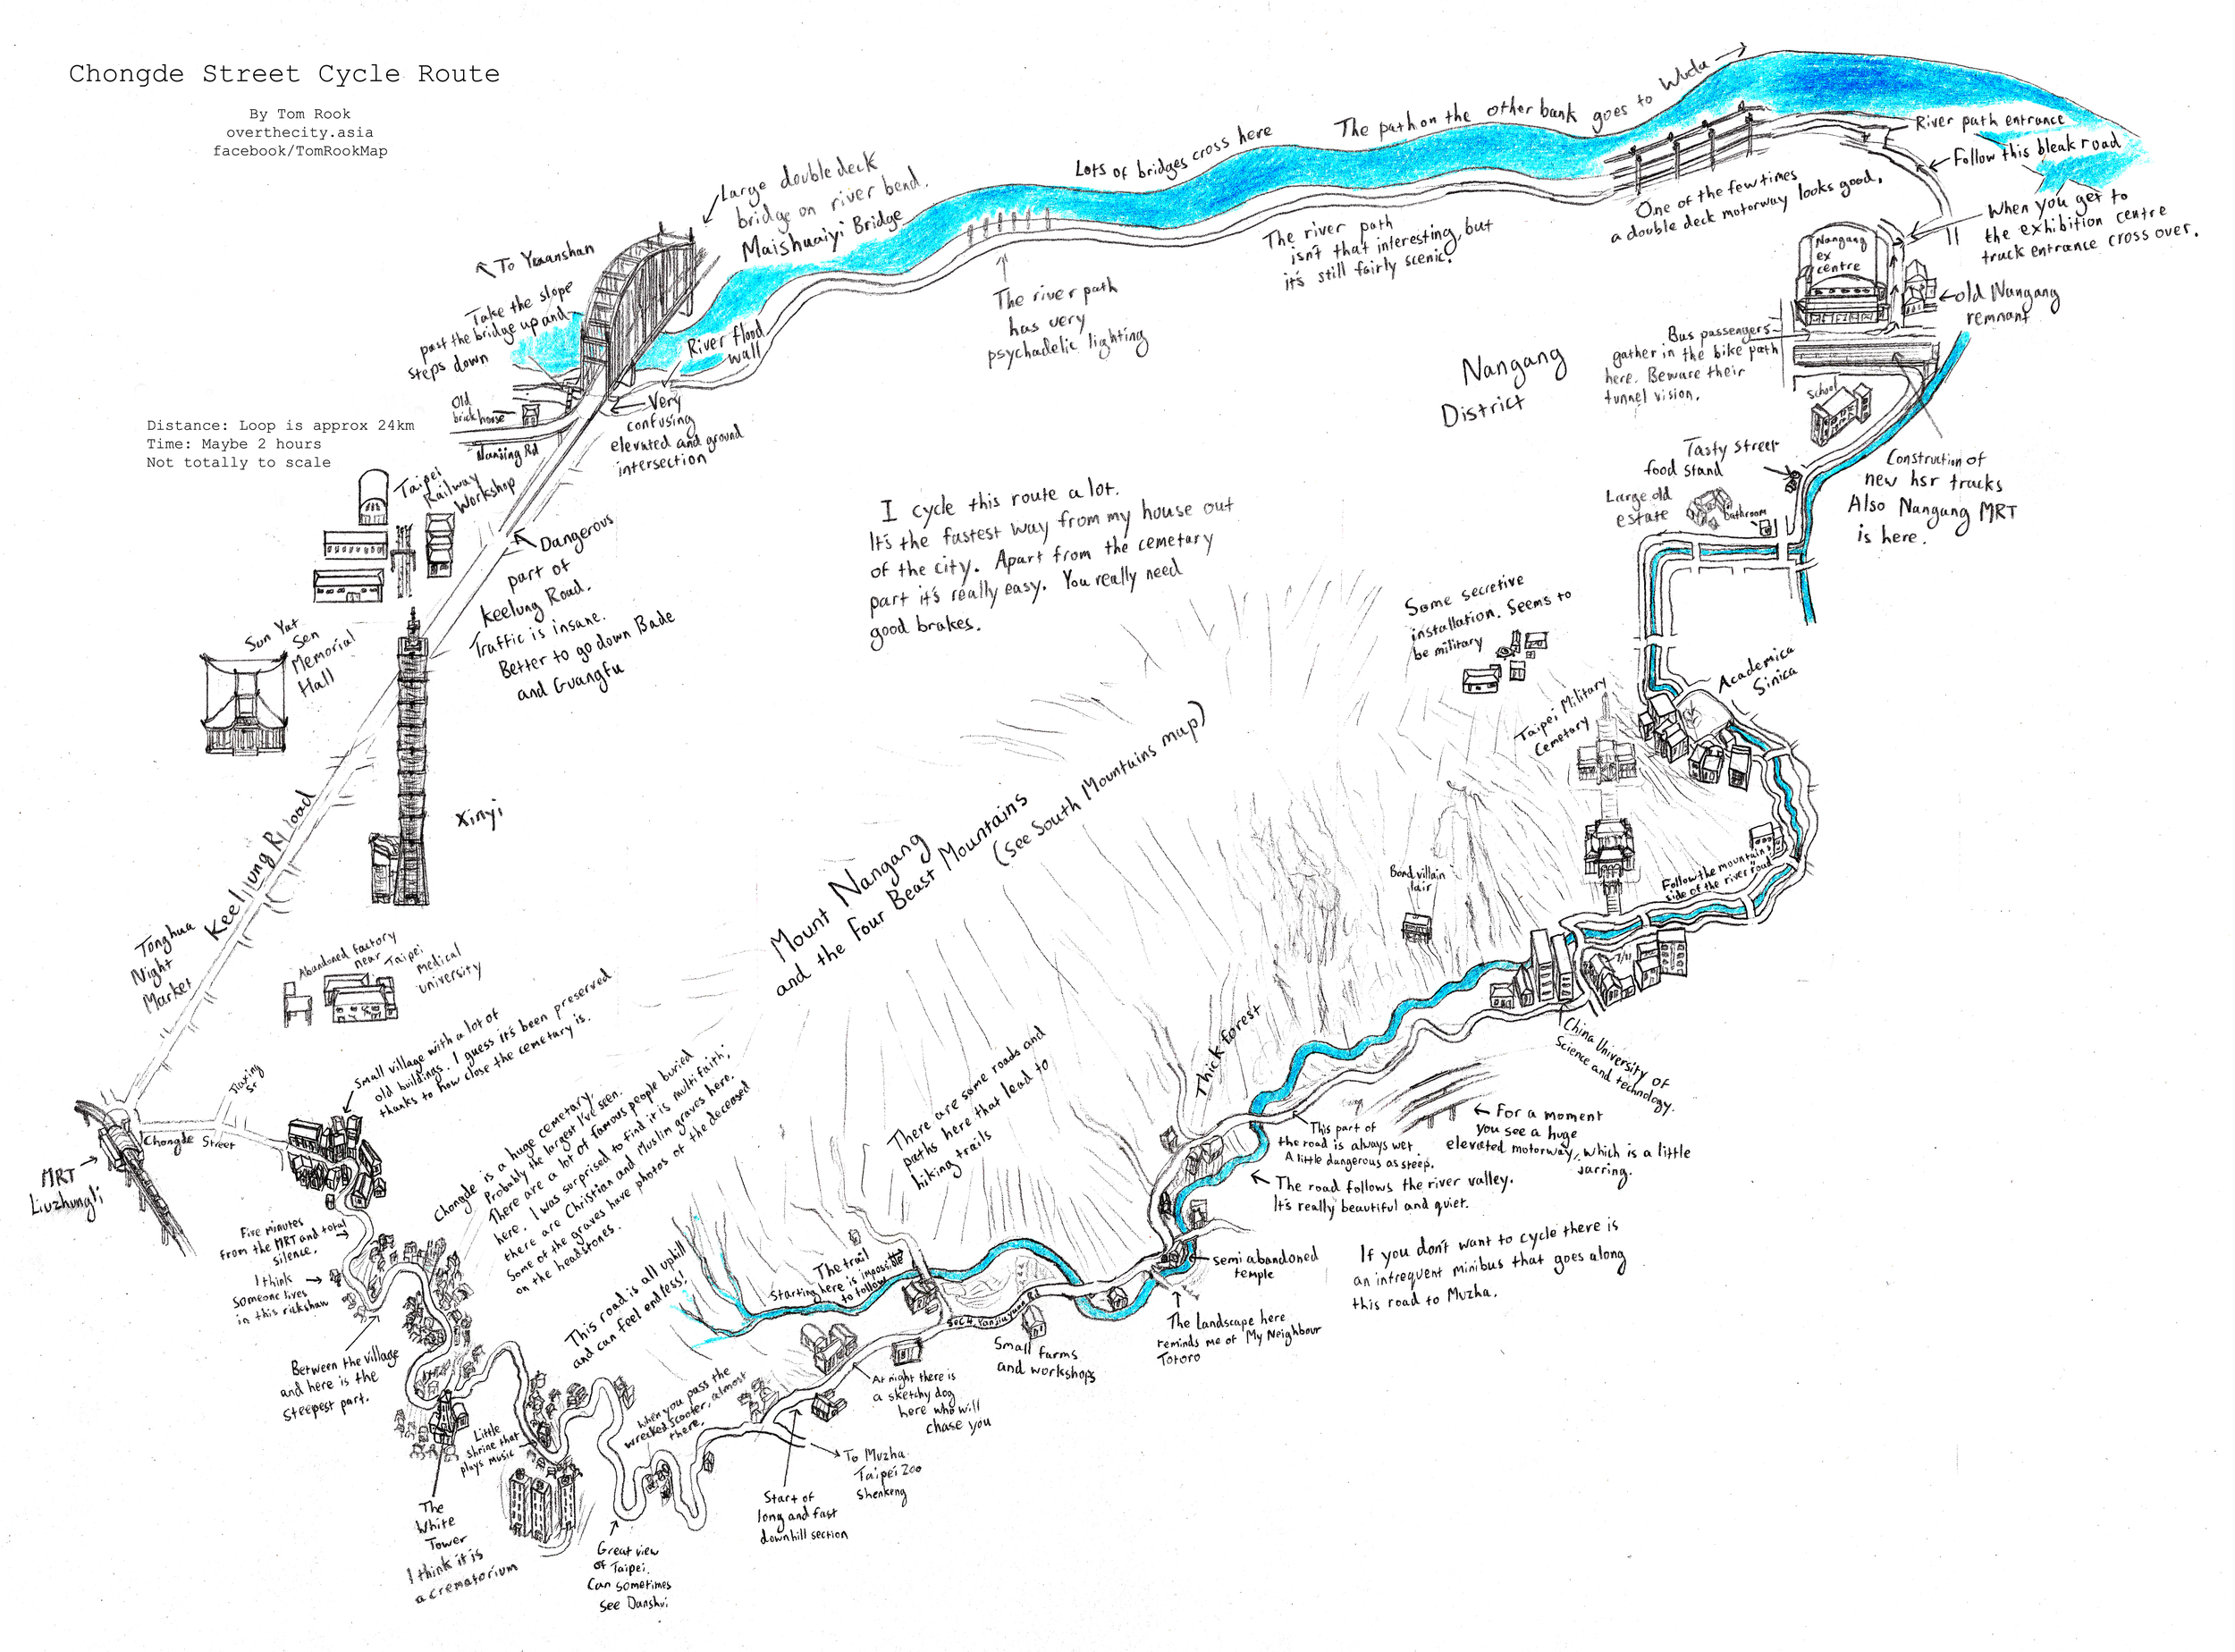 Chongde Street Cycle Route
By Tom Rook
overthecity.asia
facebook/TomRookMap
Distance: Loop is approx 24km
Time: Maybe 2 hours
Not totally to scale
Large double deck
bridge on river bend.
Maishuaiyi Bridge
To Yuanshan
Take the slope
past the bridge up and
steps down
Old
brick house
Nanjing Rd
River flood
wall
Very
confusing
elevated and ground
intersection
Lots of bridges cross here
The path on the other bank goes to Wudu
The river path
has very
psychadelic lighting
The river path
isn't that interesting, but
it's still fairly scenic.
One of the few times
a double deck motorway looks good.
River path entrance
Follow this bleak road
When you get to
the exhibition centre
truck entrance cross over.
Nangang
ex
centre
old Nangang
remnant
Bus passengers
gather in the bike path
here. Beware their
tunnel vision.
Nangang
District
School
Tasty street
food stand
Large old
estate
Bathroom
Construction of
new hsr tracks
Also Nangang MRT
is here.
Taipei
Railway
Workshop
Dangerous
part of
Keelung Road.
Traffic is insane.
Better to go down Bade
and Guangfu
Sun Yat
Sen
Memorial
Hall
I cycle this route a lot.
It's the fastest way from my house out
of the city. Apart from the cemetary
part it's really easy. You really need
good brakes.
Some secretive
installation. Seems to
be military
Taipei Military
Cemetary
Academica
Sinica
Keelung Road
Xinyi
Mount Nangang
and the Four Beast Mountains
(see South Mountains map)
Bond villain
lair
Follow the mountain
side of the river road
7/11
China University of
Science and technology.
Tonghua
Night
Market
Abandoned factory
near Taipei
Medical
University
Small village with a lot of
old buildings. I guess it's been preserved
thanks to how close the cemetary is.
Jiaxing
St
Chongde Street
MRT
Liuzhangli
Chongde is a huge cemetary.
Probably the largest I've seen.
There are a lot of famous people buried
here. I was surprised to find it is multi faith;
there are Christian and Muslim graves here.
Some of the graves have photos of the deceased
on the headstones.
There are some roads and
paths here that lead to
hiking trails
Thick forest
This part of
the road is always wet.
A little dangerous as steep.
For a moment
you see a huge
elevated motorway, which is a little
jarring.
The road follows the river valley.
It's really beautiful and quiet.
Five minutes
from the MRT and total
silence.
I think
someone lives
in this rickshaw
Between the village
and here is the
steepest part.
This road is all uphill
and can feel endless!
The trail
starting here is impossible
to follow
Sec 4 Yanjiuyuan Rd
semi abandoned
temple
If you don't want to cycle there is
an infrequent minibus that goes along
this road to Muzha.
The landscape here
reminds me of My Neighbour
Totoro
Small farms
and workshops
At night there is
a sketchy dog
here who will
chase you
When you pass the
wrecked scooter, almost
there.
Little
shrine that
plays music
To Muzha
Taipei Zoo
Shenkeng
Start of
long and fast
downhill section
The
White
Tower
I think it is
a crematorium
Great view
of Taipei.
Can sometimes
see Danshui